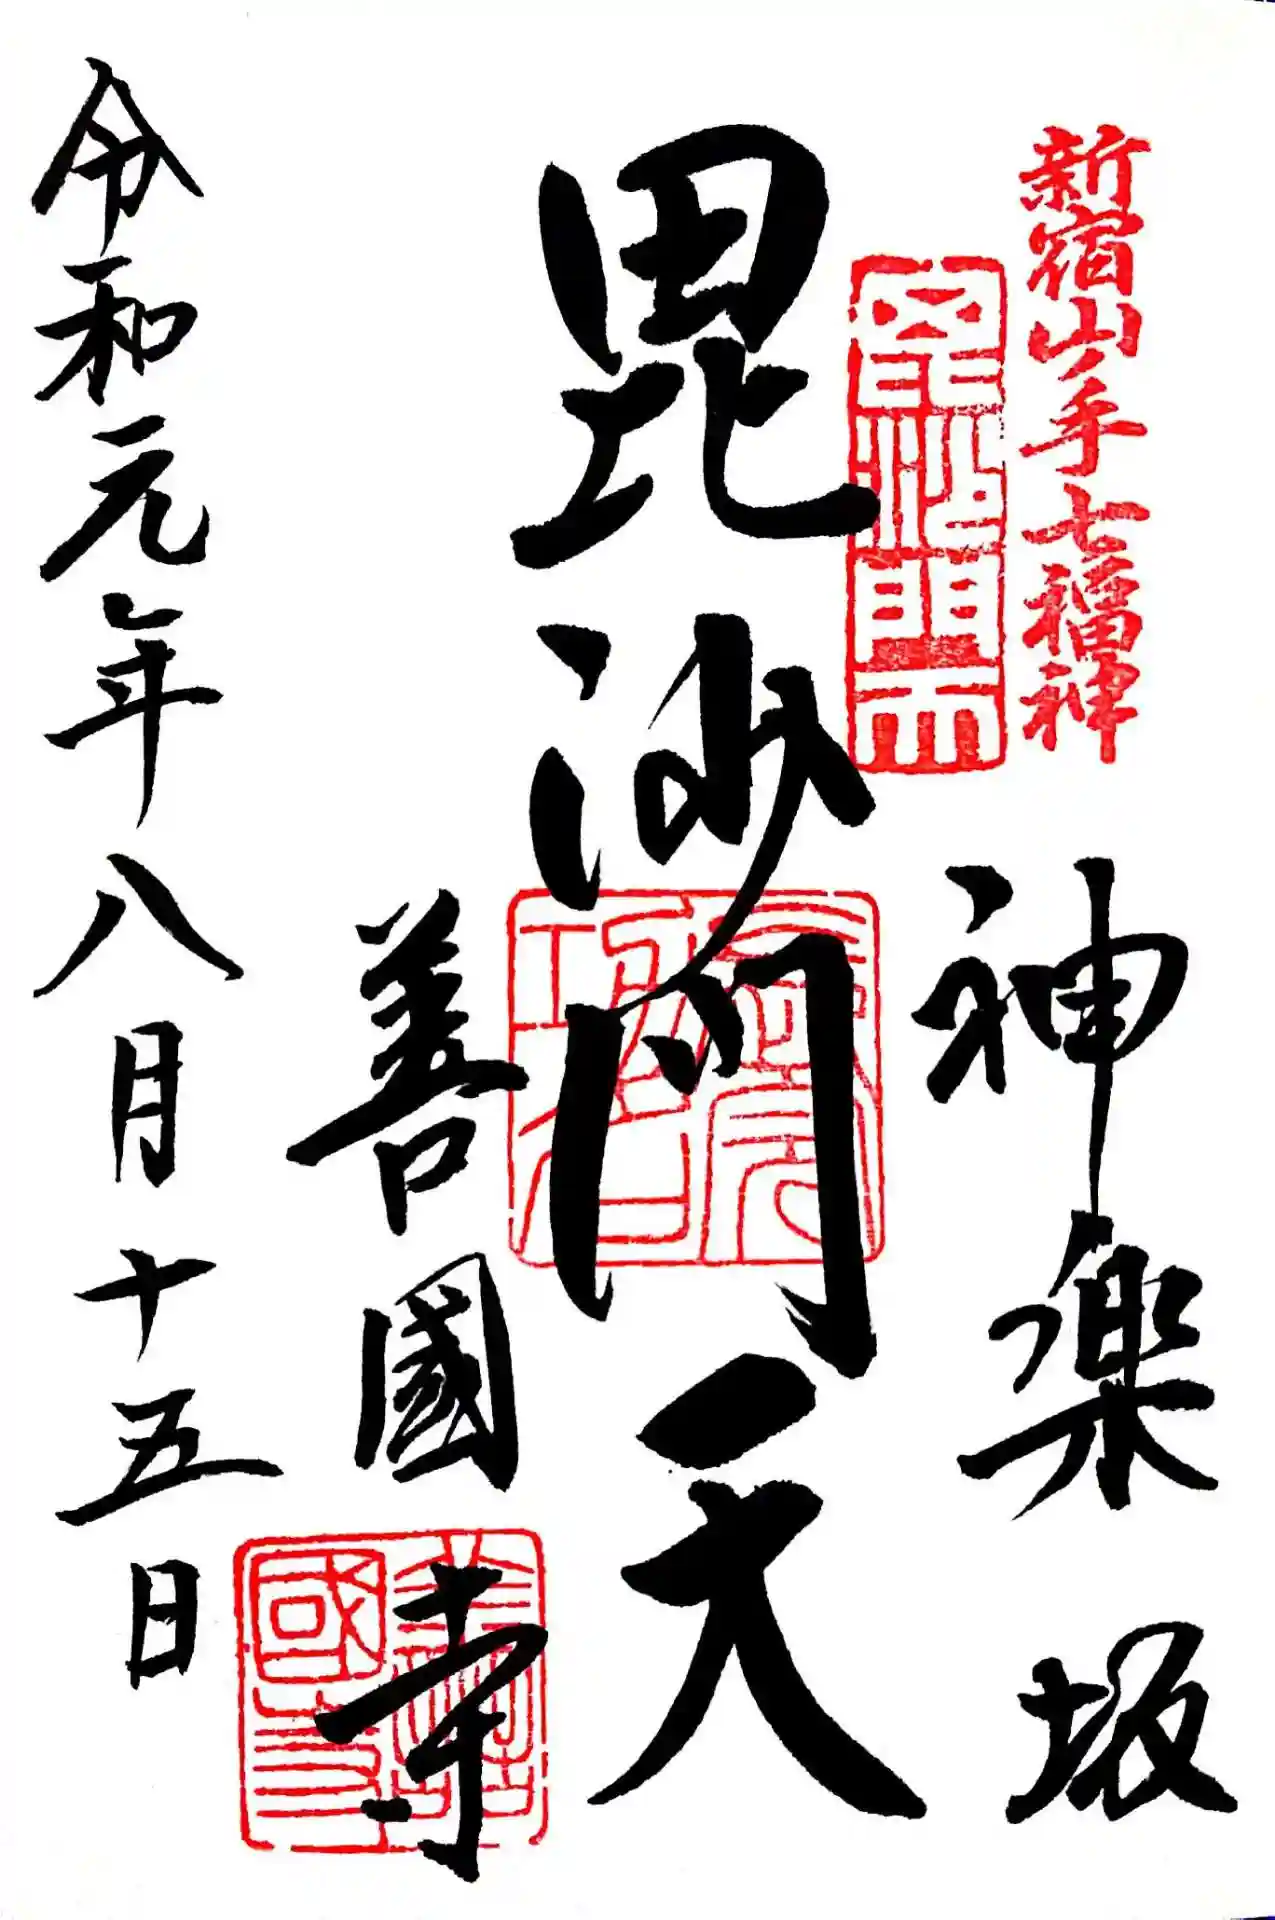 新宿山ノ手七福神
神楽坂
毘沙門天
善國寺
令和元年八月十五日
善國寺